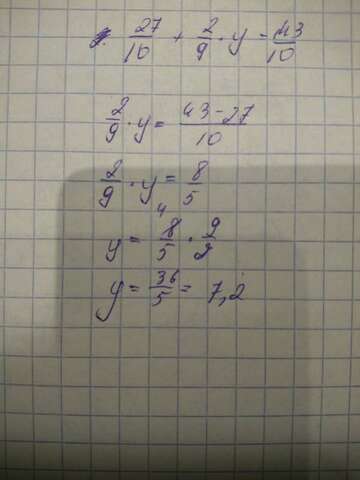 27/10 + 2/9 · y = 43/10
2/9 · y = (43-27)/10
2/9 · y = 8/5
4
y = 8/5 · 9/2
y = 36/5 = 7,2